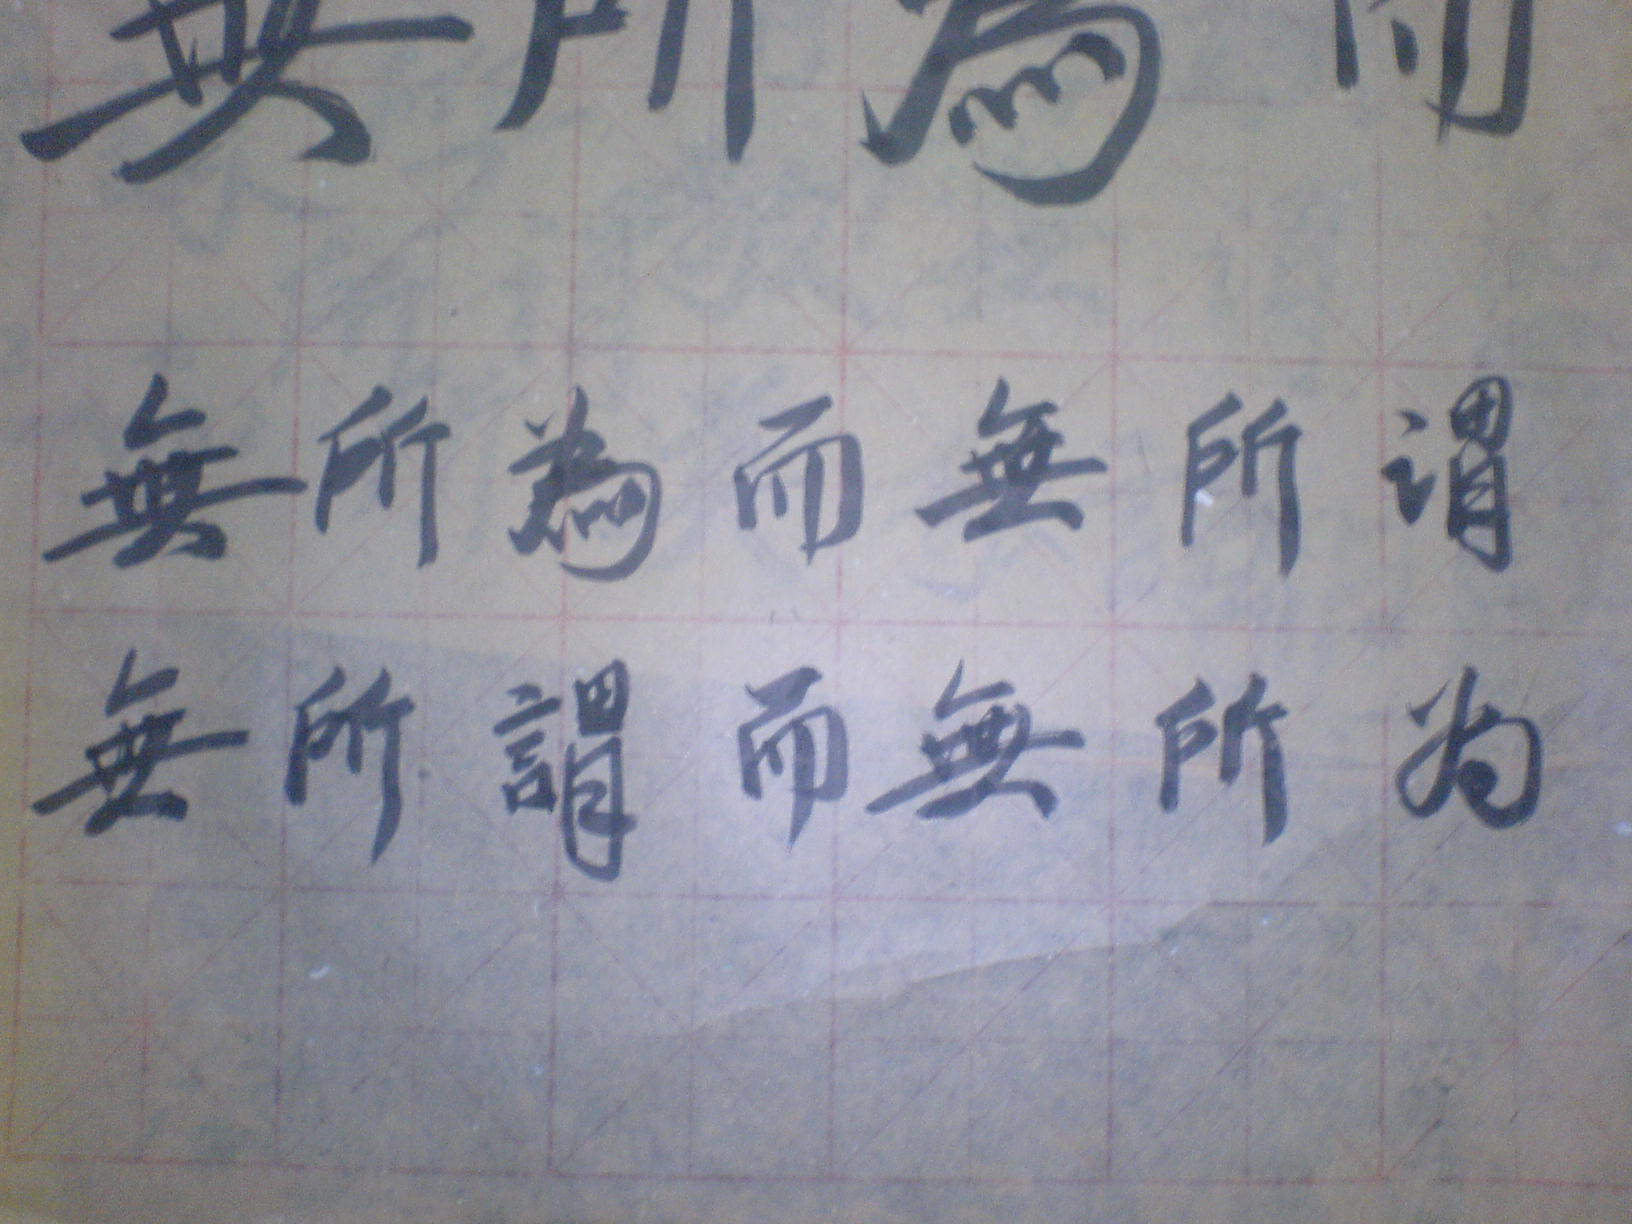 無所為而
無所為而無所谓
無所謂而無所为